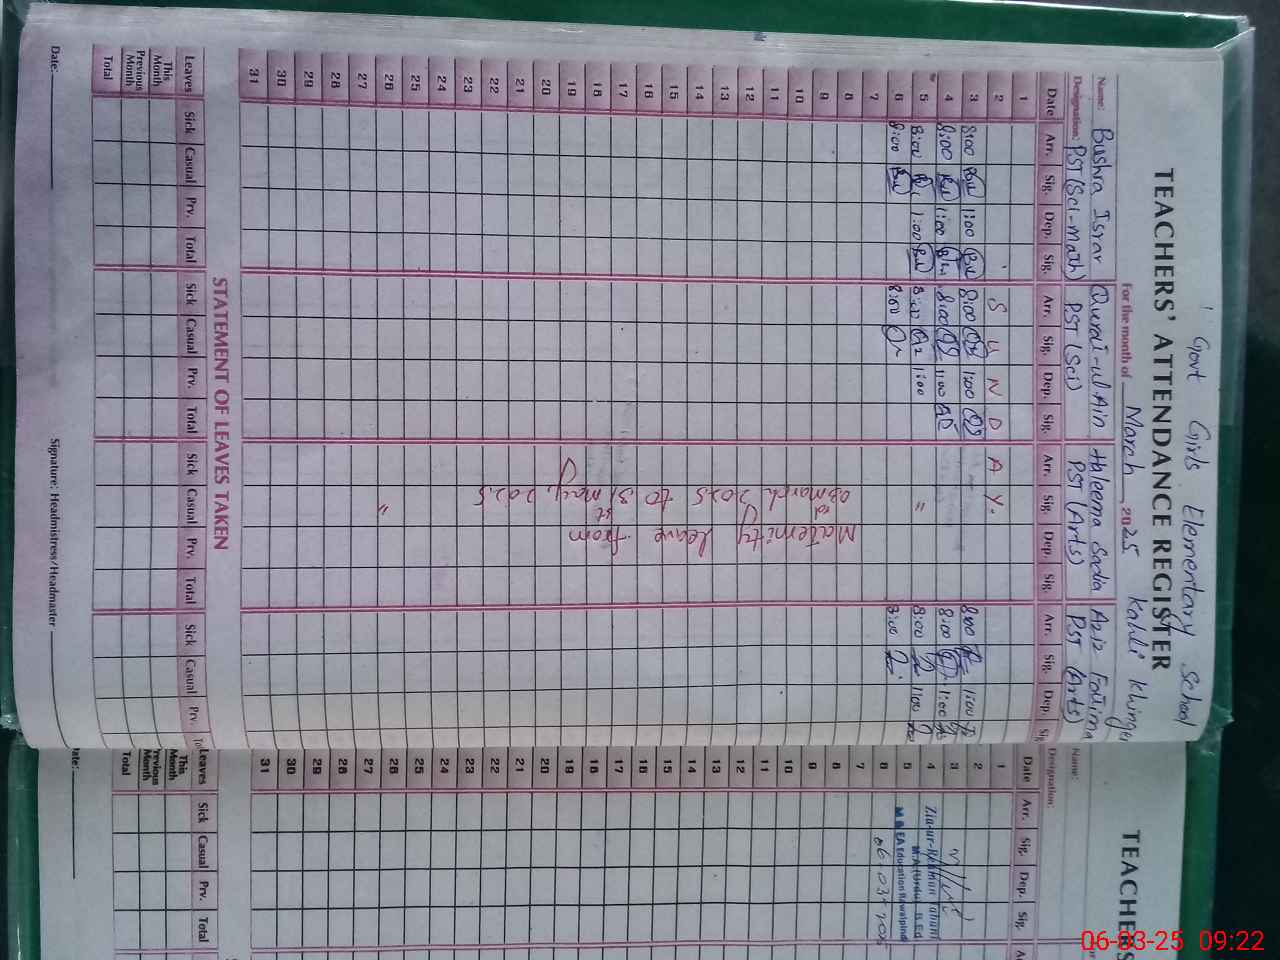 Govt Girls Elementary School
Kahli Khinger
TEACHERS' ATTENDANCE REGISTER
For the month of March, 2025
Name: Bushra Israr Qurat-ul Ain Haleema Sadia Aziz Fatima
Designation: PST(Sci-math) PST (Sci) PST (Arts) PST (Arts)
Date Arr. Sig. Dep. Sig. Arr. Sig. Dep. Sig. Arr. Sig. Dep. Sig. Arr. Sig. Dep. Sig
1
2 S U N D A Y.
3 8:00 1:00 8:00 1:00 8:00 1:00
4 8:00 1:00 8:00 1:00 8:00 1:00
5 8:00 1:00 8:00 1:00 " 8:00 1:00
6 8:00 8:00 8:00
7
8
9
10
11
12
13
14
15
16
17
18
19
20
21
22
23
24
25
26 "
27
28
29
30
31
Maternity leave from
03rd march 2025 to 31st may, 2025
STATEMENT OF LEAVES TAKEN
Leaves Sick Casual Prv. Total Sick Casual Prv. Total Sick Casual Prv. Total Sick Casual Prv. To
This Month
Previous Month
Total
Date: Signature: Headmistress/Headmaster
TEACHERS
Name:
Designation:
Date Arr. Sig. Dep. Sig. Ar
1
2
3
4
5
6
7
8
9
10
11
12
13
14
15
16
17
18
19
20
21
22
23
24
25
26
27
28
29
30
31
Zia-ur-Rehman
M.A (Urdu) B.Ed
M & EA Education Rawalpindi
06-03-2025
Leaves Sick Casual Prv. Total
This Month
Previous Month
Total
ate:
06-03-25 09:22